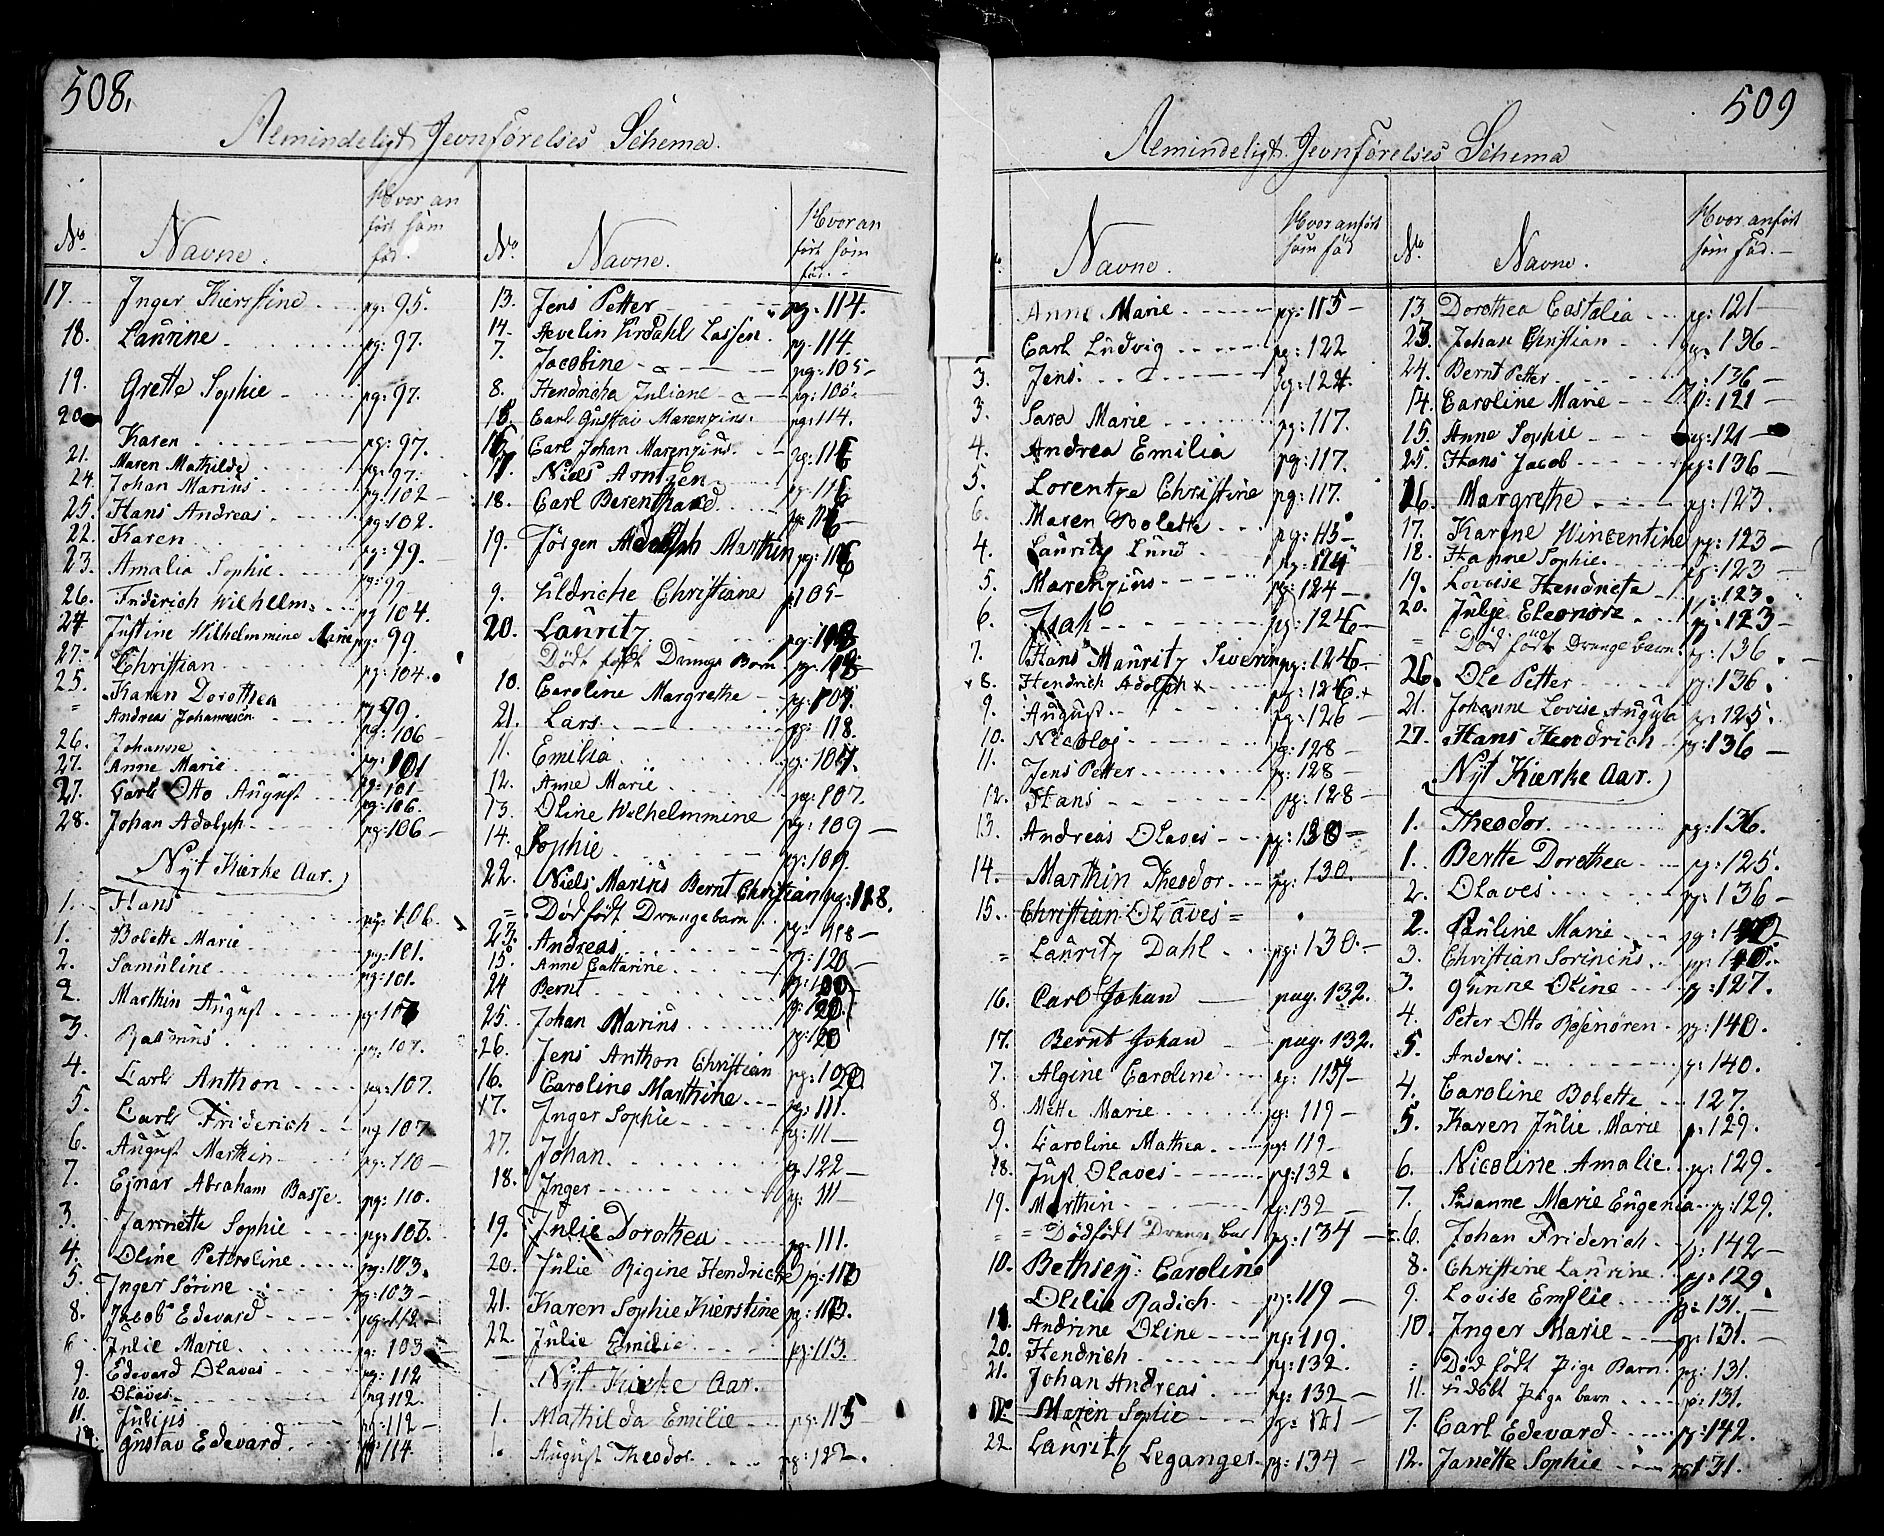 508.
Almindeligt Jevnførelses Schema.
No Navne. Hvor an
ført som
fød.
17. Inger Kierstine pg: 95.
18. Laurine pg: 97.
19. Grethe Sophie pg: 97.
20 Karen pg: 97.
21. Maren Mathilde pg: 97.
24. Johan Marius pg: 102
25. Hans Andreas pg: 102.
22. Karen pg: 99.
23. Amalia Sophie pg: 99
26. Friderich Wilhellm pg 104.
24 Justine Wilhelmmine Marie pg. 99.
27. Christian pg: 104.
25. Karen Dorothea pg 99.
= Andreas Johannesen pg: 106
26. Johanne pg: 101
27. Anne Marie pg: 101
27. Carl Otto August pg: 106.
28. Johan Adolph pg: 106
Nyt Kierke Aar.
1. Hans pg: 106.
1. Bolette Marie pg: 101.
2. Samuline pg: 101.
2. Marthin August pg: 107
3. Rasmus pg: 107.
4. Carl Anthon pg: 107.
5. Carl Friderich pg 107
6. August Marthin pg: 110
7. Ejnar Abraham Basse pg: 110.
3. Jannette Sophie pg: 103.
4. Oline Petroline pg: 103.
5. Inger Sørine pg: 103
8. Jacob Edevard pg: 112
6 Julie Marie pg: 103
9. Edevard Olaves pg: 112
10. Olaves pg 112.
11. Julius pg: 112
12. Gustav Edevard pg 114.
No Navne. Hvor an
ført som
fød.
13. Jens Petter pg. 114.
14. Aevelin Lassen pg. 114.
7. Jacobine pg: 105
8. Hendricha Juliane pg: 105.
15. Carl Gustav Marenzius pg: 114.
16. Carl Johan Marenzius. pg: 116
17. Niels Arntzen pg. 116
18. Carl Berenthard pg: 116
19. Jørgen Adolph Marthin pg: 116
9. Uldriche Christiane p 105
20. Lauritz pg: 118
Dødt født Drenge Barn pg. 118
10. Caroline Margrethe pg: 107.
21. Lars pg: 118.
11. Emilia pg: 107.
12. Anne Marie pg: 107.
13. Oline Wilhelmmine pg: 109
14. Sophie pg: 109.
22. Niels Marius Bernt Christian pg: 118.
= Dødfødt Drengebarn pg: 118
23. Andreas pg: 120
15. Anne Cattarine pg: 109
24 Bernt pg: 120
25. Johan Marius pg: 120
26. Jens Anthon Christian pg: 120
16. Caroline Marthine pg: 111.
17. Inger Sophie pg: 111
27. Johan pg: 122
18. Inger pg: 111
19. Julie Dorothea pg: 111.
20. Julie Rigine Hendriche pg: 113
21. Karen Sophie Kierstine pg: 113.
22. Julie Emilie pg: 113.
Nyt Kierke Aar.
1. Mathilda Emilie pg: 115
1. August Theodor pg: 122.
509
Almindeligt Jevnførelses Schema
Navne. Hvor anført
som fød
Anne Marie pg: 115
Carl Ludvig pg: 122
3. Jens pg: 124.
3. Sara Marie pg: 117.
4. Andrea Emilia pg: 117.
5. Lorentze Christine pg: 117.
6. Maren Bolette pg: 115
4. Lauritz Lund pg: 124
5. Marenzius pg: 124
6. Isak pg: 126
7. Hans Mauritz Siverin pg: 126
8. Hendrich Adolph pg: 126.
9. August pg: 126
10. Nicolaj pg: 128
11. Jens Petter pg: 128
12. Hans pg: 128
13. Andreas Olaves pg: 130
14. Marthin Theodor pg: 130.
15. Christian Olaves =
= Lauritz Dahl pg: 130.
16. Carl Johan pag. 132.
17. Bernt Johan pag. 132.
7. Algine Caroline pg: 117
8. Mette Marie pg: 119
9. Caroline Mathea pg: 119
18. Just Olaves pg: 132.
19. Marthin pg: 132
= Dødfødt Drenge barn pg: 134
10. Bethsey: Caroline
Otilie Radich pg: 119
11. Andrine Oline pg: 119.
20. Hendrich pg: 132.
21. Johan Andreas pg: 132
12. Maren Sophie pg: 121
22. Lauritz Leganger pg: 134
No Navne. Hvor anført
som fød.
13. Dorothea Castalia pg: 121
23. Johan Christian pg: 136
24. Bernt Petter pg: 136
14. Caroline Marie p: 121
15. Anne Sophie pg: 121
25. Hans Jacob pg: 136
16. Margrethe pg: 123.
17. Karine Wincentine pg: 123
18. Hanne Sophie pg: 123
19. Lovise Hendricta pg: 123.
20. Julje Eleonore pg: 123
= Død født Drenge barn pg: 136.
26. Ole Petter pg: 136.
21. Johanne Lovise Augusta pg: 125.
27. Hans Hendrich pg: 136
Nyt Kierke Aar.
1. Theodor pg: 136.
1. Berthe Dorothea pg: 125.
2. Olaves pg: 136
2. Pauline Marie pg:
3. Christian Sorinius pg:
3. Gunne Oline pg: 127.
4. Peter Otto Rosenøren pg: 140.
5. Anders pg: 140.
4. Caroline Bolette 127.
5. Karen Julie Marie p: 129.
6. Nicoline Amalie pg: 129.
7. Susanne Marie Eugenia pg: 129.
6. Johan Friderich pg: 142
8. Christine Laurine pg: 129
9. Lovise Emilie pg: 131.
10. Inger Marie pg: 131.
= Død født Pige Barn pg: 131.
11. Udøbt Pige barn p: 131.
7. Carl Edevard pg: 142.
12. Janette Sophie pg 131.